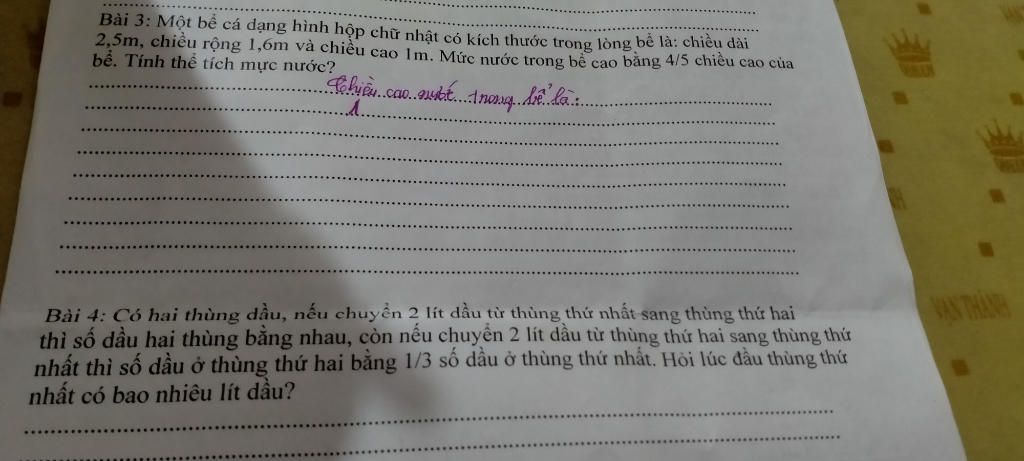 Bài 3: Một bể cá dạng hình hộp chữ nhật có kích thước trong lòng bể là: chiều dài
2,5m, chiều rộng 1,6m và chiều cao 1m. Mức nước trong bể cao bằng 4/5 chiều cao của
bể. Tính thể tích mực nước?
Chiều cao nước trong bể là:
1
Bài 4: Có hai thùng dầu, nếu chuyển 2 lít dầu từ thùng thứ nhất sang thùng thứ hai
thì số dầu hai thùng bằng nhau, còn nếu chuyển 2 lít dầu từ thùng thứ hai sang thùng thứ
nhất thì số dầu ở thùng thứ hai bằng 1/3 số dầu ở thùng thứ nhất. Hỏi lúc đầu thùng thứ
nhất có bao nhiêu lít dầu?
VẠN THÀNH